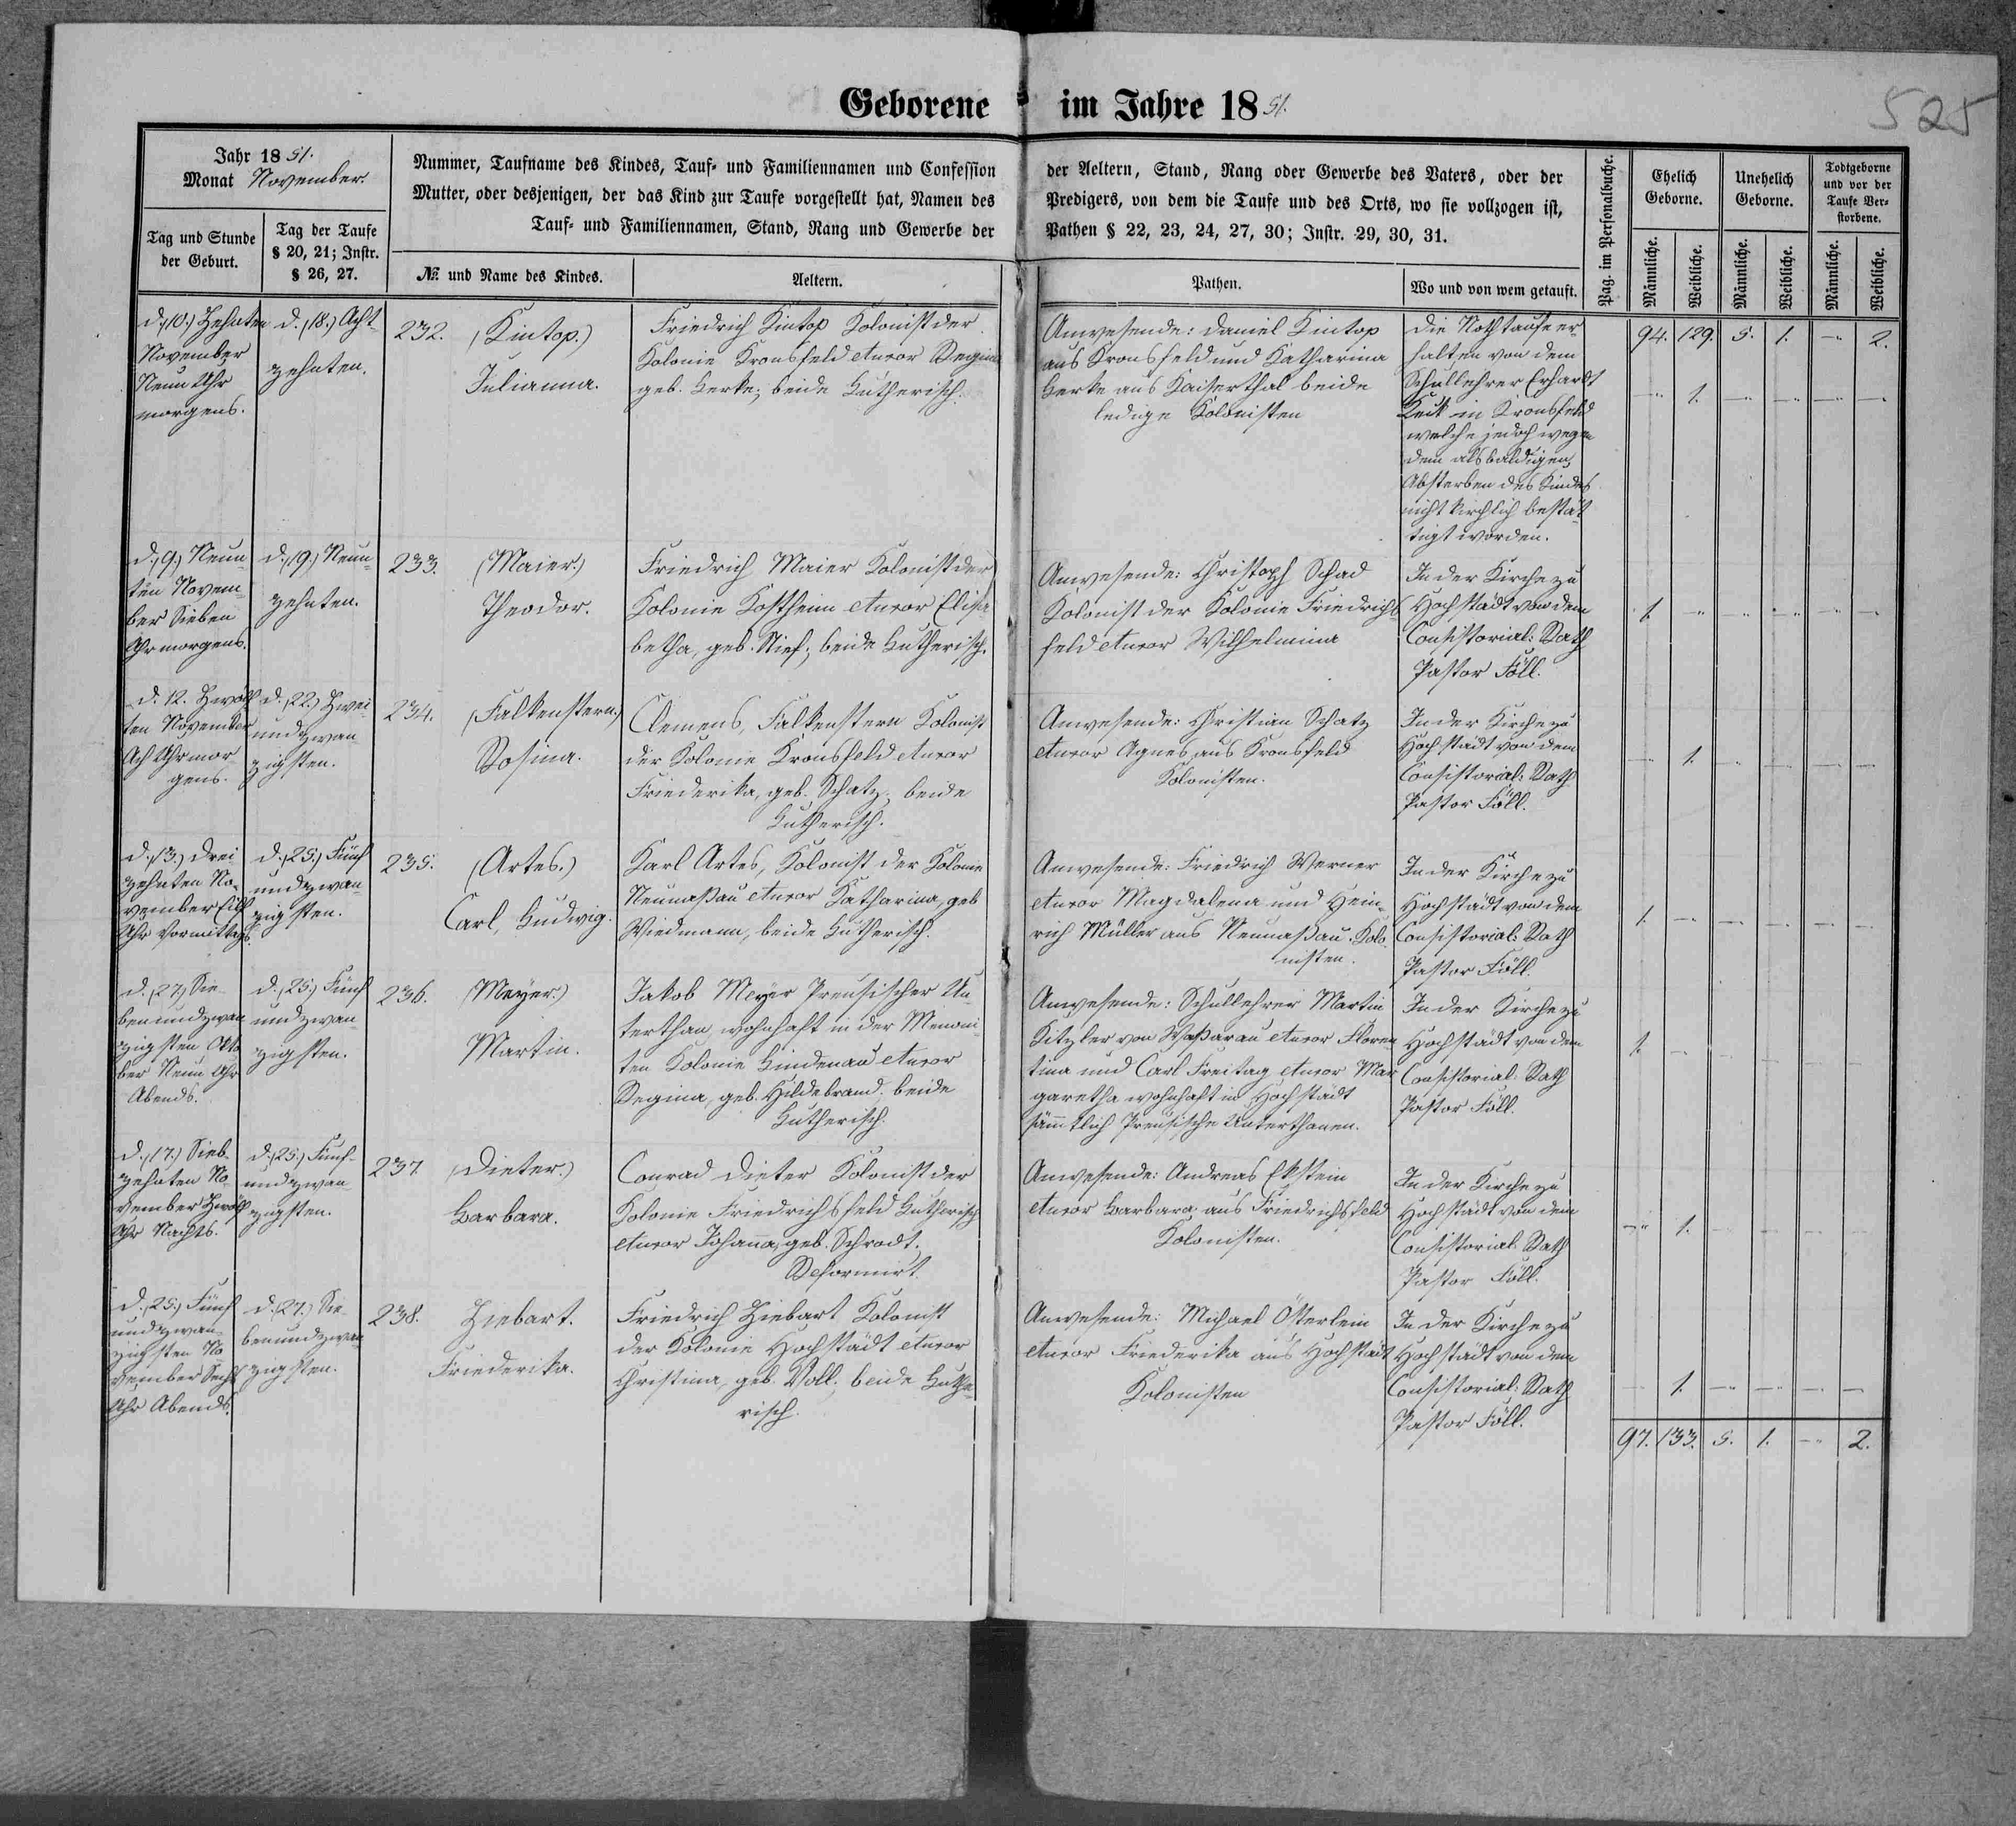 Geborene im Jahre 1851.
525
Jahr 1851.
Monat November.
Tag und Stunde
der Geburt.
Tag der Taufe
§ 20, 21; Instr.
§ 26, 27.
Nummer, Taufname des Kindes, Tauf- und Familiennamen und Confession
Mutter, oder desjenigen, der das Kind zur Taufe vorgestellt hat, Namen des
Tauf- und Familiennamen, Stand, Rang und Gewerbe der
№ und Name des Kindes.
Aeltern.
der Aeltern, Stand, Rang oder Gewerbe des Vaters, oder der
Predigers, von dem die Taufe und des Orts, wo sie vollzogen ist,
Pathen § 22, 23, 24, 27, 30; Instr. 29, 30, 31.
Pathen.
Wo und von wem getauft.
Pag. im Personalbuche.
Ehelich
Geborne.
Unehelich
Geborne.
Todtgeborne
und vor der
Taufe Ver-
storbene.
Männliche.
Weibliche.
Männliche.
Weibliche.
Männliche.
Weibliche.
d. (10.) Zehnten
November
Neun Uhr
morgens.
d. (18.) Acht-
zehnten.
232. (Kintop.)
Julianna.
Friedrich Kintop Kolonist der
Kolonie Kronsfeld et uxor Regina
geb. Berke; beide Lutherisch.
Anwesende: Daniel Kintop
aus Kronsfeld und Katharina
Berke aus Kaiserthal beide
ledige Kolonisten
Die Nothtaufe er
halten von dem
Schullehrer Erhardt
in Kronsfeld
welche jedoch wegen
dem alsbaldigen
Absterben des Kindes
nicht kirchlich bestä-
tigt worden.
94. 129. 5. 1. — 2.
— 1. — — — —
d. (9.) Neun-
ten Novem-
ber Sieben
Uhr morgens.
d. (19.) Neun-
zehnten.
233. (Maier.)
Theodor.
Friedrich Maier Kolonist der
Kolonie Kostheim et uxor Elisa-
betha, geb. Stief; beide Lutherisch.
Anwesende: Christoph Schad
Kolonist der Kolonie Friedrichs-
feld et uxor Wilhelmina
In der Kirche zu
Hochstädt von dem
Consistorial: Rath
Pastor Föll.
1. — — — — —
d. 12. Zwölf-
ten November
Ach Uhr mor
gens.
d. (22.) Zwei
und zwan-
zigsten.
234. (Falkenstern.)
Rosina.
Clemens Falkenstern Kolonist
der Kolonie Kronsfeld et uxor
Friederika, geb. Schatz; beide
Lutherisch.
Anwesende: Christian Schatz
et uxor Agnes aus Kronsfeld
Kolonisten.
In der Kirche zu
Hochstädt von dem
Consistorial: Rath
Pastor Föll.
— 1. — — — —
d. (13.) Drei
zehnten No-
vember Eilf
Uhr Vormittags.
d. (25.) Fünf
und zwan-
zigsten.
235. (Artes.)
Carl, Ludwig.
Karl Artes, Kolonist der Kolonie
Neunaßau et uxor Katharina, geb
Wiedmann, beide Lutherisch.
Anwesende: Friedrich Werner
et uxor Magdalena und Hein-
rich Müller aus Neunaßau. Kolo-
nisten.
In der Kirche zu
Hochstädt von dem
Consistorial: Rath
Pastor Föll.
1. — — — — —
d. (27.) Sie-
ben und zwan
zigsten Okto
ber Neun Uhr
Abends.
d. (25.) Fünf
und zwan-
zigsten.
236. (Meyer.)
Martin.
Jakob Meyer Preusischer Un-
terthan wohnhaft in der Menoni-
ten Kolonie Lindenau et uxor
Regina, geb. Hildebrand. beide
Lutherisch.
Anwesende: Schullehrer Martin
Kitzler von Waßarau et uxor Floren
tina und Carl Freitag et uxor Mar
garetha wohnhaft in Hochstädt
sämtlich Preusische Unterthanen.
In der Kirche zu
Hochstädt von dem
Consistorial: Rath
Pastor Föll.
1. — — — — —
d. (17.) Sieb-
zehnten No-
vember Zwölf
Uhr Nachts.
d. (25.) Fünf-
und zwan-
zigsten.
237. (Dieter.)
Barbara.
Conrad Dieter Kolonist der
Kolonie Friedrichsfeld Lutherisch
et uxor Johanna, geb. Schrodt.
Reformirt
Anwesende: Andreas Ekstein
et uxor Barbara aus Friedrichsfeld
Kolonisten.
In der Kirche zu
Hochstädt von dem
Consistorial: Rath
Pastor Föll.
— 1. — — — —
d. (25.) Fünf
und zwan-
zigsten No-
vember Sechs
Uhr Abends.
d. (27.) Sie-
ben und zwan
zigsten.
238. Ziebart.
Friederika.
Friedrich Ziebart Kolonist
der Kolonie Hochstädt et uxor
Christina, geb. Voll; beide Luthe-
risch.
Anwesende: Michael Österlein
et uxor Friederika aus Hochstädt
Kolonisten
In der Kirche zu
Hochstädt von dem
Consistorial: Rath
Pastor Föll.
— 1. — — — —
97. 133. 5. 1. — 2.